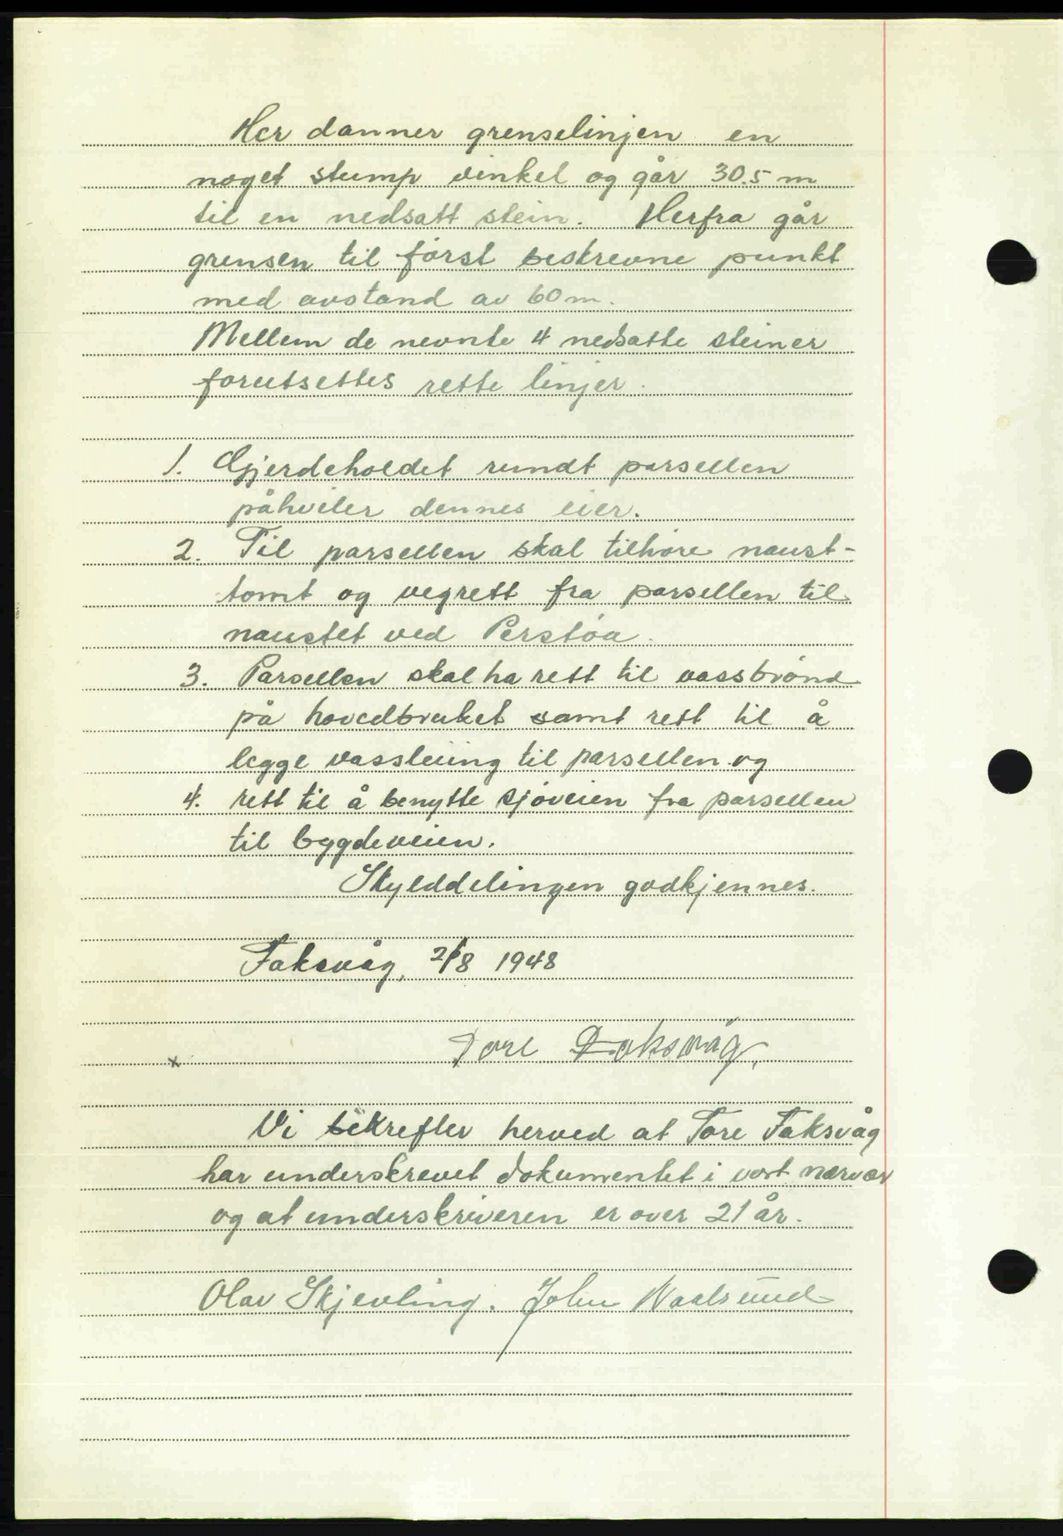 Her danner grenselinjen en
noget stump vinkel og går 30.5 m
til en nedsatt stein. Herfra går
grensen til først beskrevne punkt
med avstand av 60 m.
Mellem de nevnte 4 nedsatte steiner
forutsettes rette linjer.
1. Gjerdeholdet rundt parsellen
påhviler dennes eier.
2. Til parsellen skal tilhøre naust-
tomt og vegrett fra parsellen til
naustet ved Perstøa.
3. Parsellen skal ha rett til vassbrønd
på hovedbruket samt rett til å
legge vassleiing til parsellen og
4. rett til å benytte sjøveien fra parsellen
til bygdeveien.
Skylddelingen godkjennes.
Faksvåg, 2/8 1948
x Tore Faksvåg.
Vi bekrefter herved at Tore Faksvåg
har underskrevet dokumentet i vort nærvær
og at underskriveren er over 21 år.
Olav Skjevling. John